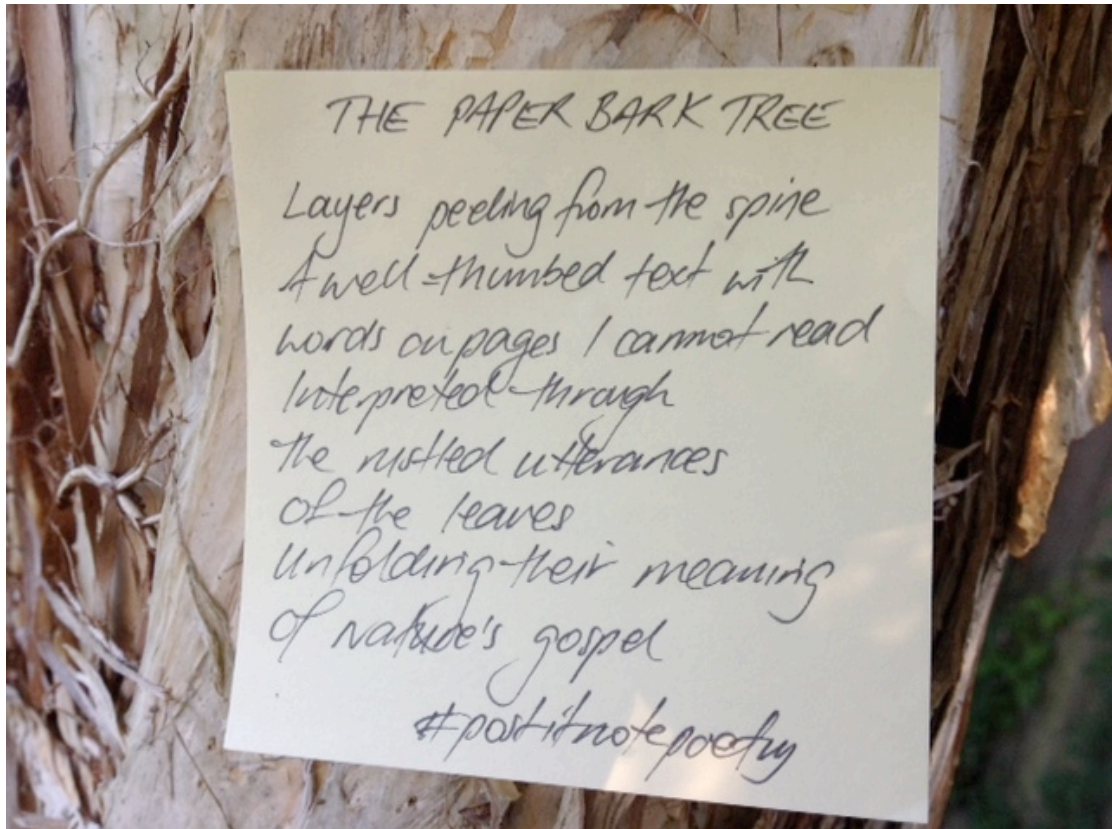 THE PAPER BARK TREE
Layers peeling from the spine
A well-thumbed text with
words on pages I cannot read
Interpreted through
the rustled utterances
of the leaves
Unfolding their meaning
of nature's gospel
#postitnotepoetry